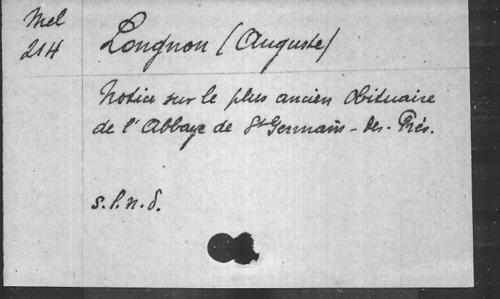 Mel
214
Longnon (Auguste)
Notice sur le plus ancien Obituaire
de l'Abbaye de St Germain-des-Prés.
s.l.n.d.